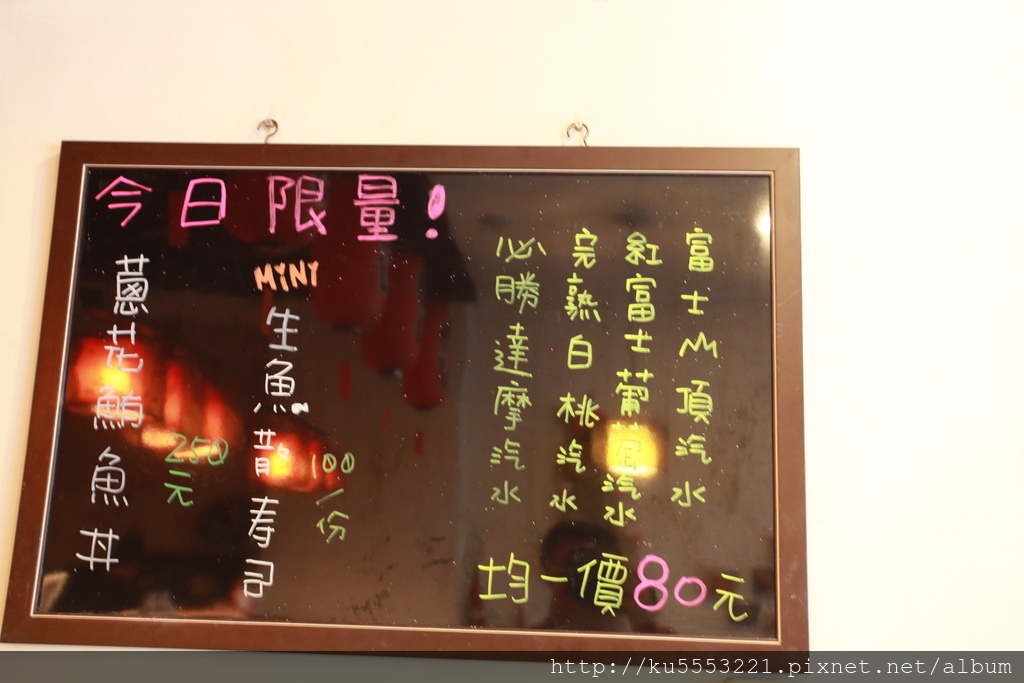 今日限量!
富士山頂汽水
紅富士葡萄汽水
完熟白桃汽水
必勝達摩汽水
均一價80元
MiNi
生魚散寿司
100/份
蔥花鮪魚丼
250元
http://ku5553221.pixnet.net/album